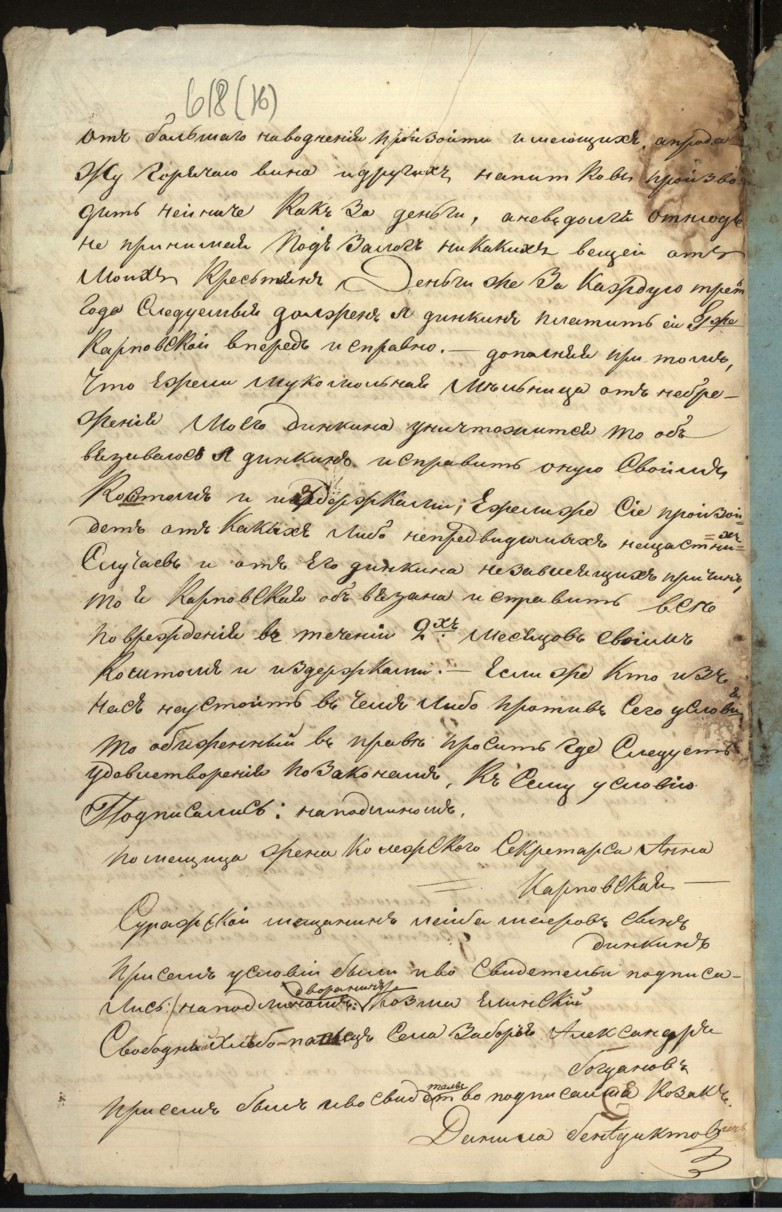 618 (16)
отъ большаго наводненія произойти имеющихъ, апрода
жу горячаго вина идругихъ напитковъ произво
дить неиначе какъ за деньги, аневъдолгъ отнюдь
не принимая подъ залогъ никакихъ вещей отъ
Моихъ Крестьянъ, Деньги же за Каждую треть
года Следуемыя долженъ я динкинъ платить ей Гже
Карповской впередъ исправно. — дополняя при томъ,
что Ежели мукомольная мѣльница отъ небре-
женія моего динкина уничтожится то объ
вязиваюсь я динкинъ исправить оную Своимъ
Коштомъ и издержками; Ежелиже Сіе произой-
детъ отъ Какихъ либо непредвидимыхъ нещастнихъ
Случаевъ и отъ Его динкина независящихъ причинъ,
то я Карповская объвязана исправить всѣ
поврежденія въ теченіи 2хъ месяцовъ своимъ
Коштомъ и издержками. — Если же Кто изъ
насъ неустоитъ въ чемъ либо противъ Сего условія
то обиженный въ правѣ просить где Следуетъ
удовлетворенія позаконамъ, Къ Сему условію
Подписались: наподлиномъ,
помещица жена Колежского Секретаря Анна
Карповская —
Суражской мещанинъ лейба мееровъ сынъ
динкинъ
присемъ условіи были иво свидетельи подписа-
лись: наподлиномъ: дворанинъ Козма Елинскій
Свободный хлѣбо-пашецъ Села Заборья Александръ
богдановъ
присемъ былъ иво свидетельство подписался Козакъ
Данила бенедиктов